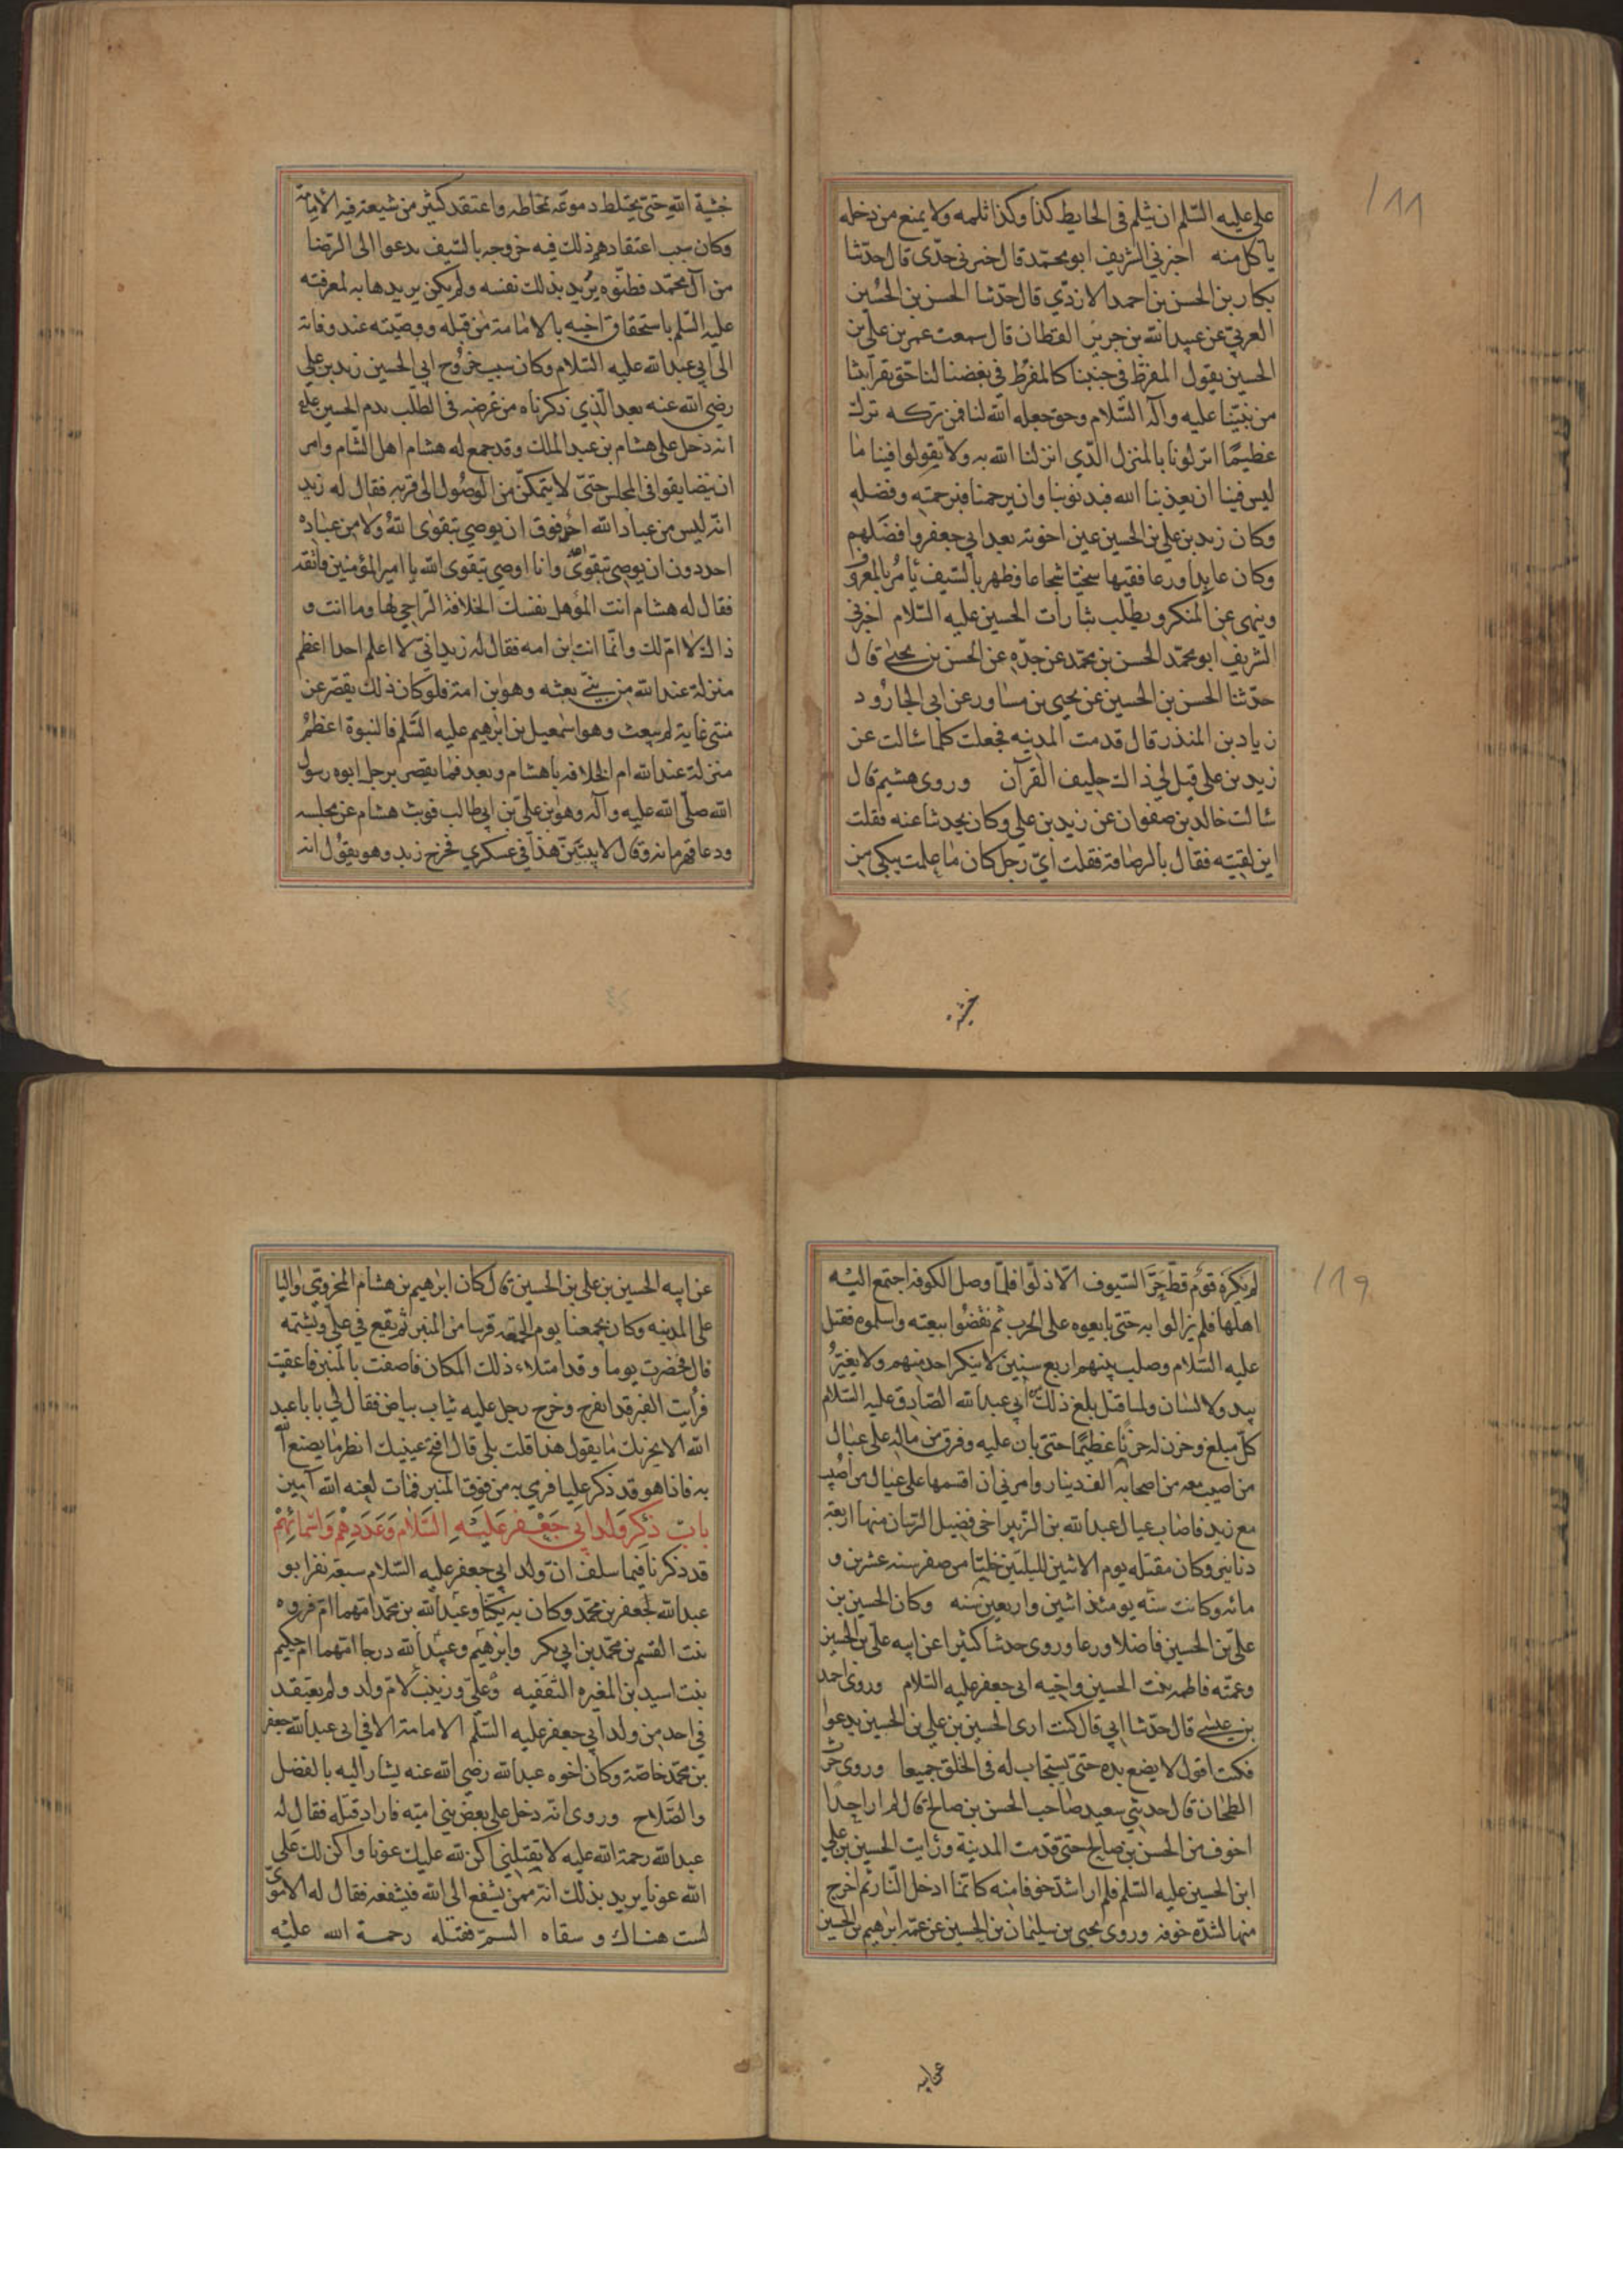 ١٨٨
علی علیه السّلم ان یثلم فی الحایط کذا وکذا ثلمه ولا یمنع من دخله
یاکل منه اخبرنی الشریف ابو محمّد قال اخبرنی جدّی قال حدّثنا
بکار بن الحسن بن احمد الازدّی قال حدّثنا الحسن بن الحُسین
العرنّی عن عبید الله بن جریر القطان قال سمعت عمر بن علّی بن
الحسین یقول المفرّط فی حبّنا کالمفرّط فی بغضنا لنا حقّ بقرابتنا
من نبیّنا علیه وآله السّلام وحق جعله الله لنا فمن ترکه ترک
عظیمًا انزلونا بالمنزل الّذی انزلنا الله به ولا تقولوا فینا ما
لیس فینا ان یعذبنا الله فبذنوبنا وان یرحمنا فبرحمته وفضله
وکان زید بن علی بن الحسین عین اخوته بعد ابی جعفر وافضلهم
وکان عابدا ورعا فقیها سخیّا شجاعا وظهر بالسّیف یأمُر بالمعروف
وینهی عن المنکر ویطلب بثارات الحسین علیه السّلام اخبرنی
الشریف ابو محمّد الحسن بن محمّد عن جدّه عن الحسن بن یحیی قال
حدّثنا الحسن بن الحسین عن یحیی بن مساور عن ابی الجارُود
زیاد بن المنذر قال قدمت المدینه فجعلت کلما سالت عن
زید بن علی قیل لی ذاک حلیف القرآن وروی هشیم قال
سالت خالد بن صفوان عن زید بن علی وکان یحدثنا عنه فقلت
این لقیته فقال بالرصافة فقلت ایّ رجل کان ما علمت یبکی من
خشیة
خشیة الله حتّی یختلط دموعه بمخاطه واعتقد کثیر من شیعته فیه الامامة
وکان سبب اعتقادهم ذلک فیه خروجه بالسّیف یدعوا الی الرّضا
من آل محمّد فظنّوه یُرید بذلک نفسه ولم یکن یریدها به لمعرفته
علیه السّلم باستحقاق اخیه بالامامة من قبله ووصیّته عند وفاته
الی ابی عبد الله علیه السّلام وکان سبب خرُوج ابی الحسین زید بن علی
رضی الله عنه بعد الّذی ذکرناه من غرضه فی الطّلب بدم الحسین علیه
انه دخل علی هشام بن عبد الملک وقد جمع له هشام اهل الشام وامر
ان یتضایقوا فی المجلس حتّی لا یتمکّن من الوصُول الی قربه فقال له زید
انّه لیس من عباد الله احد فوق ان یوصی بتقوی اللهُ ولا من عباده
احد دون ان یوصی بتقوی الله وانا اوصی بتقوی الله یا امیر المؤمنین فاتقه
فقال له هشام انت المؤهل نفسک الخلافة الرّاجی لها وما انت و
ذاک لا امّ لک وانّما انت ابن امه فقال له زید انّی لا اعلم احدا اعظم
منزلة عند الله من نبیّ بعثه وهو ابن امة فلو کان ذلک یقصر عن
منتهی غایة لم یبعث وهو اسمعیل بن ابرهیم علیه السّلم فالنبوة اعظمُ
منزلة عند الله ام الخلافه یا هشام وبعد فما یقصر برجل ابوه رسول
الله صلّی الله علیه وآله وهو بن علّی بن ابی طالب فوثب هشام عن مجلسه
ودعا قهرمانه وقال لا یبیتنّ هذا فی عسکری فخرج زید وهو یقوُل انه
١١٩
لم یکره قوم قطّ حرّ السّیوف الّا ذلّوا فلمّا وصل الکوفه اجتمع الیه
اهلها فلم یزالوا به حتی بایعوه علی الحرب ثم نقضُوا بیعته واسلموه فقتل
علیه السّلام وصلب بینهم اربع سنین لا ینکر احد منهم ولا یغیّرُ
بید ولا لسان ولما قتل بلغ ذلک من ابی عبد الله الصّادق علیه السّلام
کلّ مبلغ وحزن له حزنًا عظیمًا حتی بان علیه وفرق من ماله علی عیال
من اصیب معه من اصحابه الف دینار وامرنی ان اقسمها علی عیال من اصُیب
مع زید فاصاب عیال عبد الله بن الزّبیر اخی فضیل الرّسان منها اربعة
دنانیر وکان مقتله یوم الاثنین للیلتین خلتا من صفر سنه عشرین و
مائه وکانت سنّه یومئذ اثنین واربعین سنه وکان الحسین بن
علیّ بن الحسین فاضلا ورعا وروی حدیثا کثیرا عن ابیه علّی بن الحسین
وعمّته فاطمه بنت الحسین واخیه ابی جعفر علیه السّلام وروی احمد
بن عیسی قال حدّثنا ابی قال کنت اری الحسین بن علی بن الحسین یدعوا
فکنت اقول لا یضع یده حتی یستجاب له فی الخلق جمیعا وروی حرب
الطحّان قال حدثنی سعید صاحب الحسن بن صالح قال لم ار احدًا
اخوف من الحسن بن صالح حتّی قدمت المدینة ورایت الحسین بن علی
ابن الحسین علیه السّلم فلم ار اشدّ خوفا منه کانّما ادخل النّار ثم اخرج
منها لشدّة خوفه وروی یحیی بن سلیمان بن الحسین عن عمّه ابرهیم بن الحسین
عن ابیه
عن ابیه الحسین بن علی بن الحسین قال کان ابرهیم بن هشام المخزومّی والیا
علی المدینه وکان یجمعنا یوم الجمعه قریبا من المنبر ثم یقع فی علیّ ویشتمه
قال فحضرت یوما وقد امتلاء ذلک المکان فلصقت بالمنبر فاغفیت
فرأیت القبر قد انفرج وخرج رجل علیه ثیاب بیاض فقال لی یا با عبد
الله الا یحزنک ما یقول هذا قلت بلی قال افتح عینیک انظر ما یصنع الله
به فاذا هو قد ذکر علیا فرمی به من فوق المنبر فمات لعنه الله آمین
بابُ ذِکرِ وَلدِ ابی جَعْفر عَلَیْهِ السَّلام وَعَدَدِهِمْ وَاَسْمائِهِمْ
قد ذکرنا فیما سلف انّ ولد ابی جعفر علیه السّلام سبعة نفر ابو
عبد الله جعفر بن محمّد وکان به یکنّی وعبد الله بن محمّد امّهما امّ فروه
بنت القسم بن محمّد بن ابی بکر وابرهیم وعبید الله درجا امّهما ام حکیم
بنت اسید بن المغیره الثقفیه وعلّی وزینب لامّ ولد ولم یعتقد
فی احد من ولد ابی جعفر علیه السّلم الامامة الا فی ابی عبد الله جعفر
بن محمّد خاصّة وکان اخوه عبد الله رضی الله عنه یشار الیه بالفضل
والصّلاح وروی انّه دخل علی بعض بنی امیّه فاراد قتله فقال له
عبد الله رحمة الله علیه لا تقتلنی اکن لله علیک عونا واکن لک علی
الله عونا یرید بذلک انّه ممن یشفع الی الله فیشفعه فقال له الامویّ
لست هناک وسقاه السمّ فقتله رحمة الله علیه